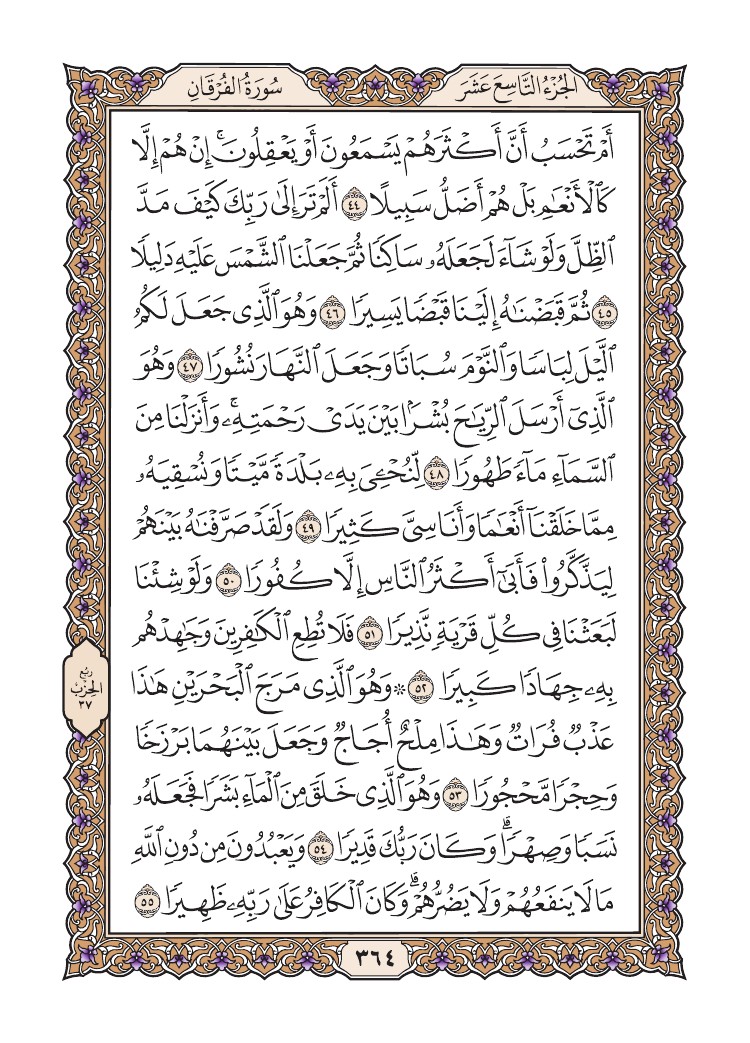 الجزء التاسع عشر
سورة الفرقان
أَمۡ تَحۡسَبُ أَنَّ أَكۡثَرَهُمۡ يَسۡمَعُونَ أَوۡ يَعۡقِلُونَۚ إِنۡ هُمۡ إِلَّا
كَٱلۡأَنۡعَٰمِ بَلۡ هُمۡ أَضَلُّ سَبِيلًا ٤٤ أَلَمۡ تَرَ إِلَىٰ رَبِّكَ كَيۡفَ مَدَّ
ٱلظِّلَّ وَلَوۡ شَآءَ لَجَعَلَهُۥ سَاكِنٗا ثُمَّ جَعَلۡنَا ٱلشَّمۡسَ عَلَيۡهِ دَلِيلٗا
٤٥ ثُمَّ قَبَضۡنَٰهُ إِلَيۡنَا قَبۡضٗا يَسِيرٗا ٤٦ وَهُوَ ٱلَّذِي جَعَلَ لَكُمُ
ٱلَّيۡلَ لِبَاسٗا وَٱلنَّوۡمَ سُبَاتٗا وَجَعَلَ ٱلنَّهَارَ نُشُورٗا ٤٧ وَهُوَ
ٱلَّذِيٓ أَرۡسَلَ ٱلرِّيَٰحَ بُشۡرَۢا بَيۡنَ يَدَيۡ رَحۡمَتِهِۦۚ وَأَنزَلۡنَا مِنَ
ٱلسَّمَآءِ مَآءٗ طَهُورٗا ٤٨ لِّنُحۡـِۧيَ بِهِۦ بَلۡدَةٗ مَّيۡتٗا وَنُسۡقِيَهُۥ
مِمَّا خَلَقۡنَآ أَنۡعَٰمٗا وَأَنَاسِيَّ كَثِيرٗا ٤٩ وَلَقَدۡ صَرَّفۡنَٰهُ بَيۡنَهُمۡ
لِيَذَّكَّرُواْ فَأَبَىٰٓ أَكۡثَرُ ٱلنَّاسِ إِلَّا كُفُورٗا ٥٠ وَلَوۡ شِئۡنَا
لَبَعَثۡنَا فِي كُلِّ قَرۡيَةٖ نَّذِيرٗا ٥١ فَلَا تُطِعِ ٱلۡكَٰفِرِينَ وَجَٰهِدۡهُم
بِهِۦ جِهَادٗا كَبِيرٗا ٥٢ ۞ وَهُوَ ٱلَّذِي مَرَجَ ٱلۡبَحۡرَيۡنِ هَٰذَا
عَذۡبٞ فُرَاتٞ وَهَٰذَا مِلۡحٌ أُجَاجٞ وَجَعَلَ بَيۡنَهُمَا بَرۡزَخٗا
وَحِجۡرٗا مَّحۡجُورٗا ٥٣ وَهُوَ ٱلَّذِي خَلَقَ مِنَ ٱلۡمَآءِ بَشَرٗا فَجَعَلَهُۥ
نَسَبٗا وَصِهۡرٗاۗ وَكَانَ رَبُّكَ قَدِيرٗا ٥٤ وَيَعۡبُدُونَ مِن دُونِ ٱللَّهِ
مَا لَا يَنفَعُهُمۡ وَلَا يَضُرُّهُمۡۗ وَكَانَ ٱلۡكَافِرُ عَلَىٰ رَبِّهِۦ ظَهِيرٗا ٥٥
ربع
الحزب
٣٧
٣٦٤